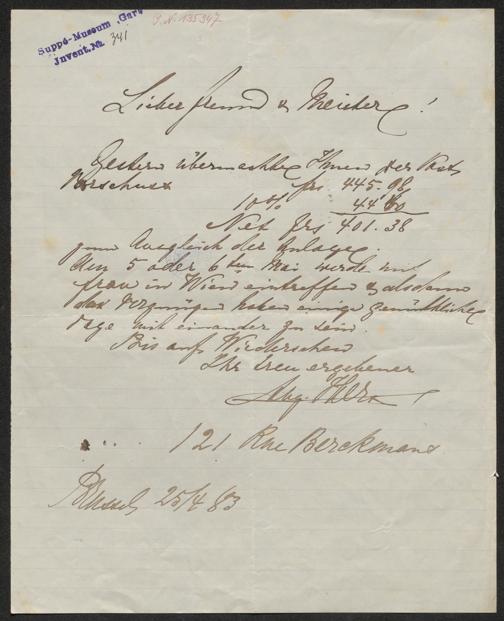 Suppé-Museum, Gars
Invent. Nr. 341
I. N. 135347
Lieber Freund & Meister!
Gestern übermachte Ihnen per Post
Vorschuss frs 445.98
10% 44 60
Net frs 401.38
zum Ausgleich der Anlage.
Am 5 oder 6ten Mai werde mit
Frau in Wien eintreffen & alsdann
das Vergnügen haben einige gemüthliche
Tage mit einander zu sein.
Bis auf Wiedersehen
Ihr treu ergebener
Aug.
121 Rue Berckmans
Brüssel 25/4 83